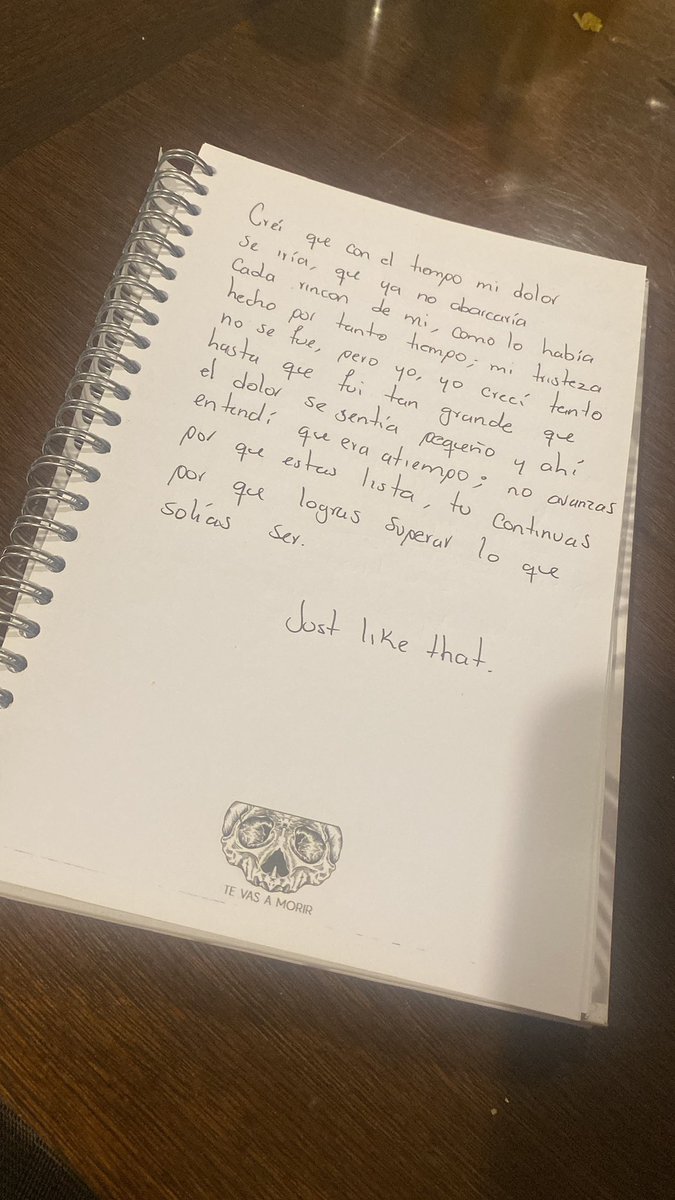 Creí que con el tiempo mi dolor
se iría, que ya no abarcaría
cada rincon de mi, como lo había
hecho por tanto tiempo; mi tristeza
no se fue, pero yo, yo crecí tanto
hasta que fui tan grande que
el dolor se sentía pequeño y ahí
entendí que era atiempo; no avanzas
por que estas lista, tu continuas
por que logras superar lo que
solías ser.
Just like that.
TE VAS A MORIR